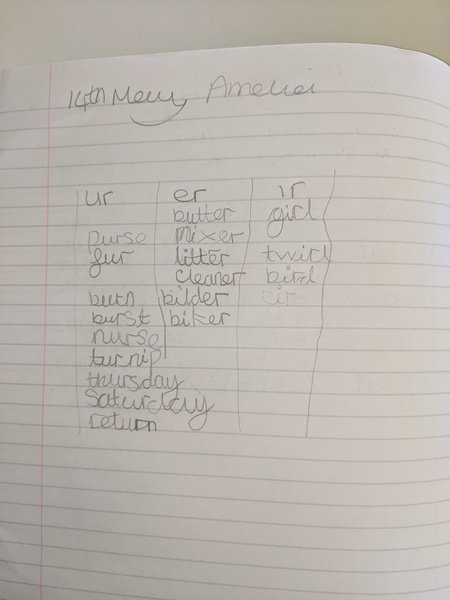 14th May Amelia
ur er ir
butter girl
purse mixer
fur litter twirl
cleaner bird
burn bilder sir
burst biker
nurse
turnip
thursday
saturday
return